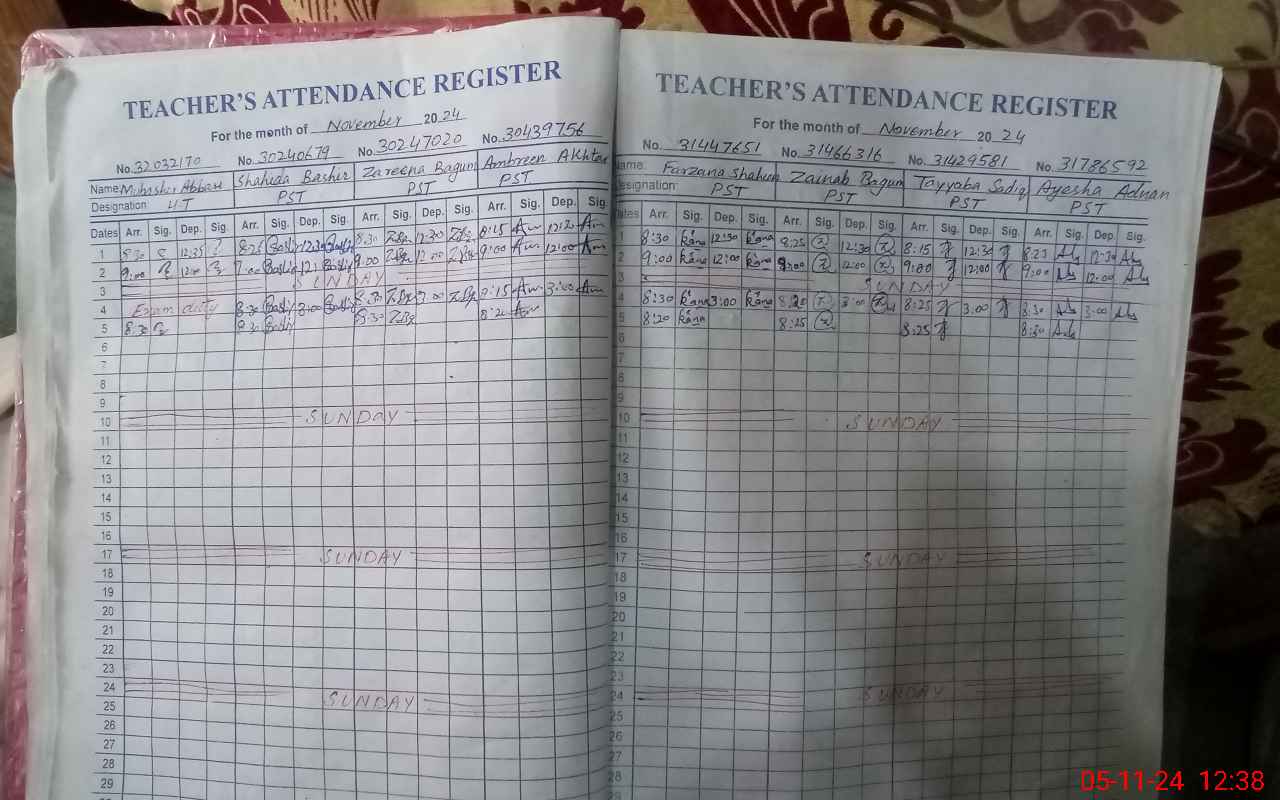 TEACHER'S ATTENDANCE REGISTER
For the month of November 2024
No. 32032170 No. 30240679 No. 30247020 No. 30439756
Name: Mubashar Abbasi Shahida Bashir Zareena Bagum Ambreen Akhtar
Designation: PST PST PST
Dates Arr. Sig. Dep. Sig. Arr. Sig. Dep. Sig. Arr. Sig. Dep. Sig. Arr. Sig. Dep. Sig.
1 8:30 12:35 8:30 12:30 8:15 12:30
2 9:00 12:00 9:00 12:00 9:00 12:00
3 SUNDAY
4 Exam duty 8:30 3:00 8:30 3:00 9:15 3:00
5 8:30 8:30 8:30 8:20
6
7
8
9
10 SUNDAY
11
12
13
14
15
16
17 SUNDAY
18
19
20
21
22
23
24 SUNDAY
25
26
27
28
29
TEACHER'S ATTENDANCE REGISTER
For the month of November 2024
No. 31447651 No. 31466316 No. 31429581 No. 31786592
Name: Farzana Shaheen Zainab Bagum Tayyaba Sadiq Ayesha Adnan
Designation: PST PST PST PST
Dates Arr. Sig. Dep. Sig. Arr. Sig. Dep. Sig. Arr. Sig. Dep. Sig. Arr. Sig. Dep. Sig.
1 8:30 12:30 8:25 12:30 8:15 12:30 12:30
2 9:00 12:00 9:00 12:00 9:00 12:00 9:00 12:00
3 SUNDAY
4 8:30 3:00 8:20 3:00 8:25 3:00 8:30 3:00
5 8:20 8:25 8:25 8:30
6
7
8
9
10 SUNDAY
11
12
13
14
15
16
17 SUNDAY
18
19
20
21
22
23
24 SUNDAY
25
26
27
28
05-11-24 12:38